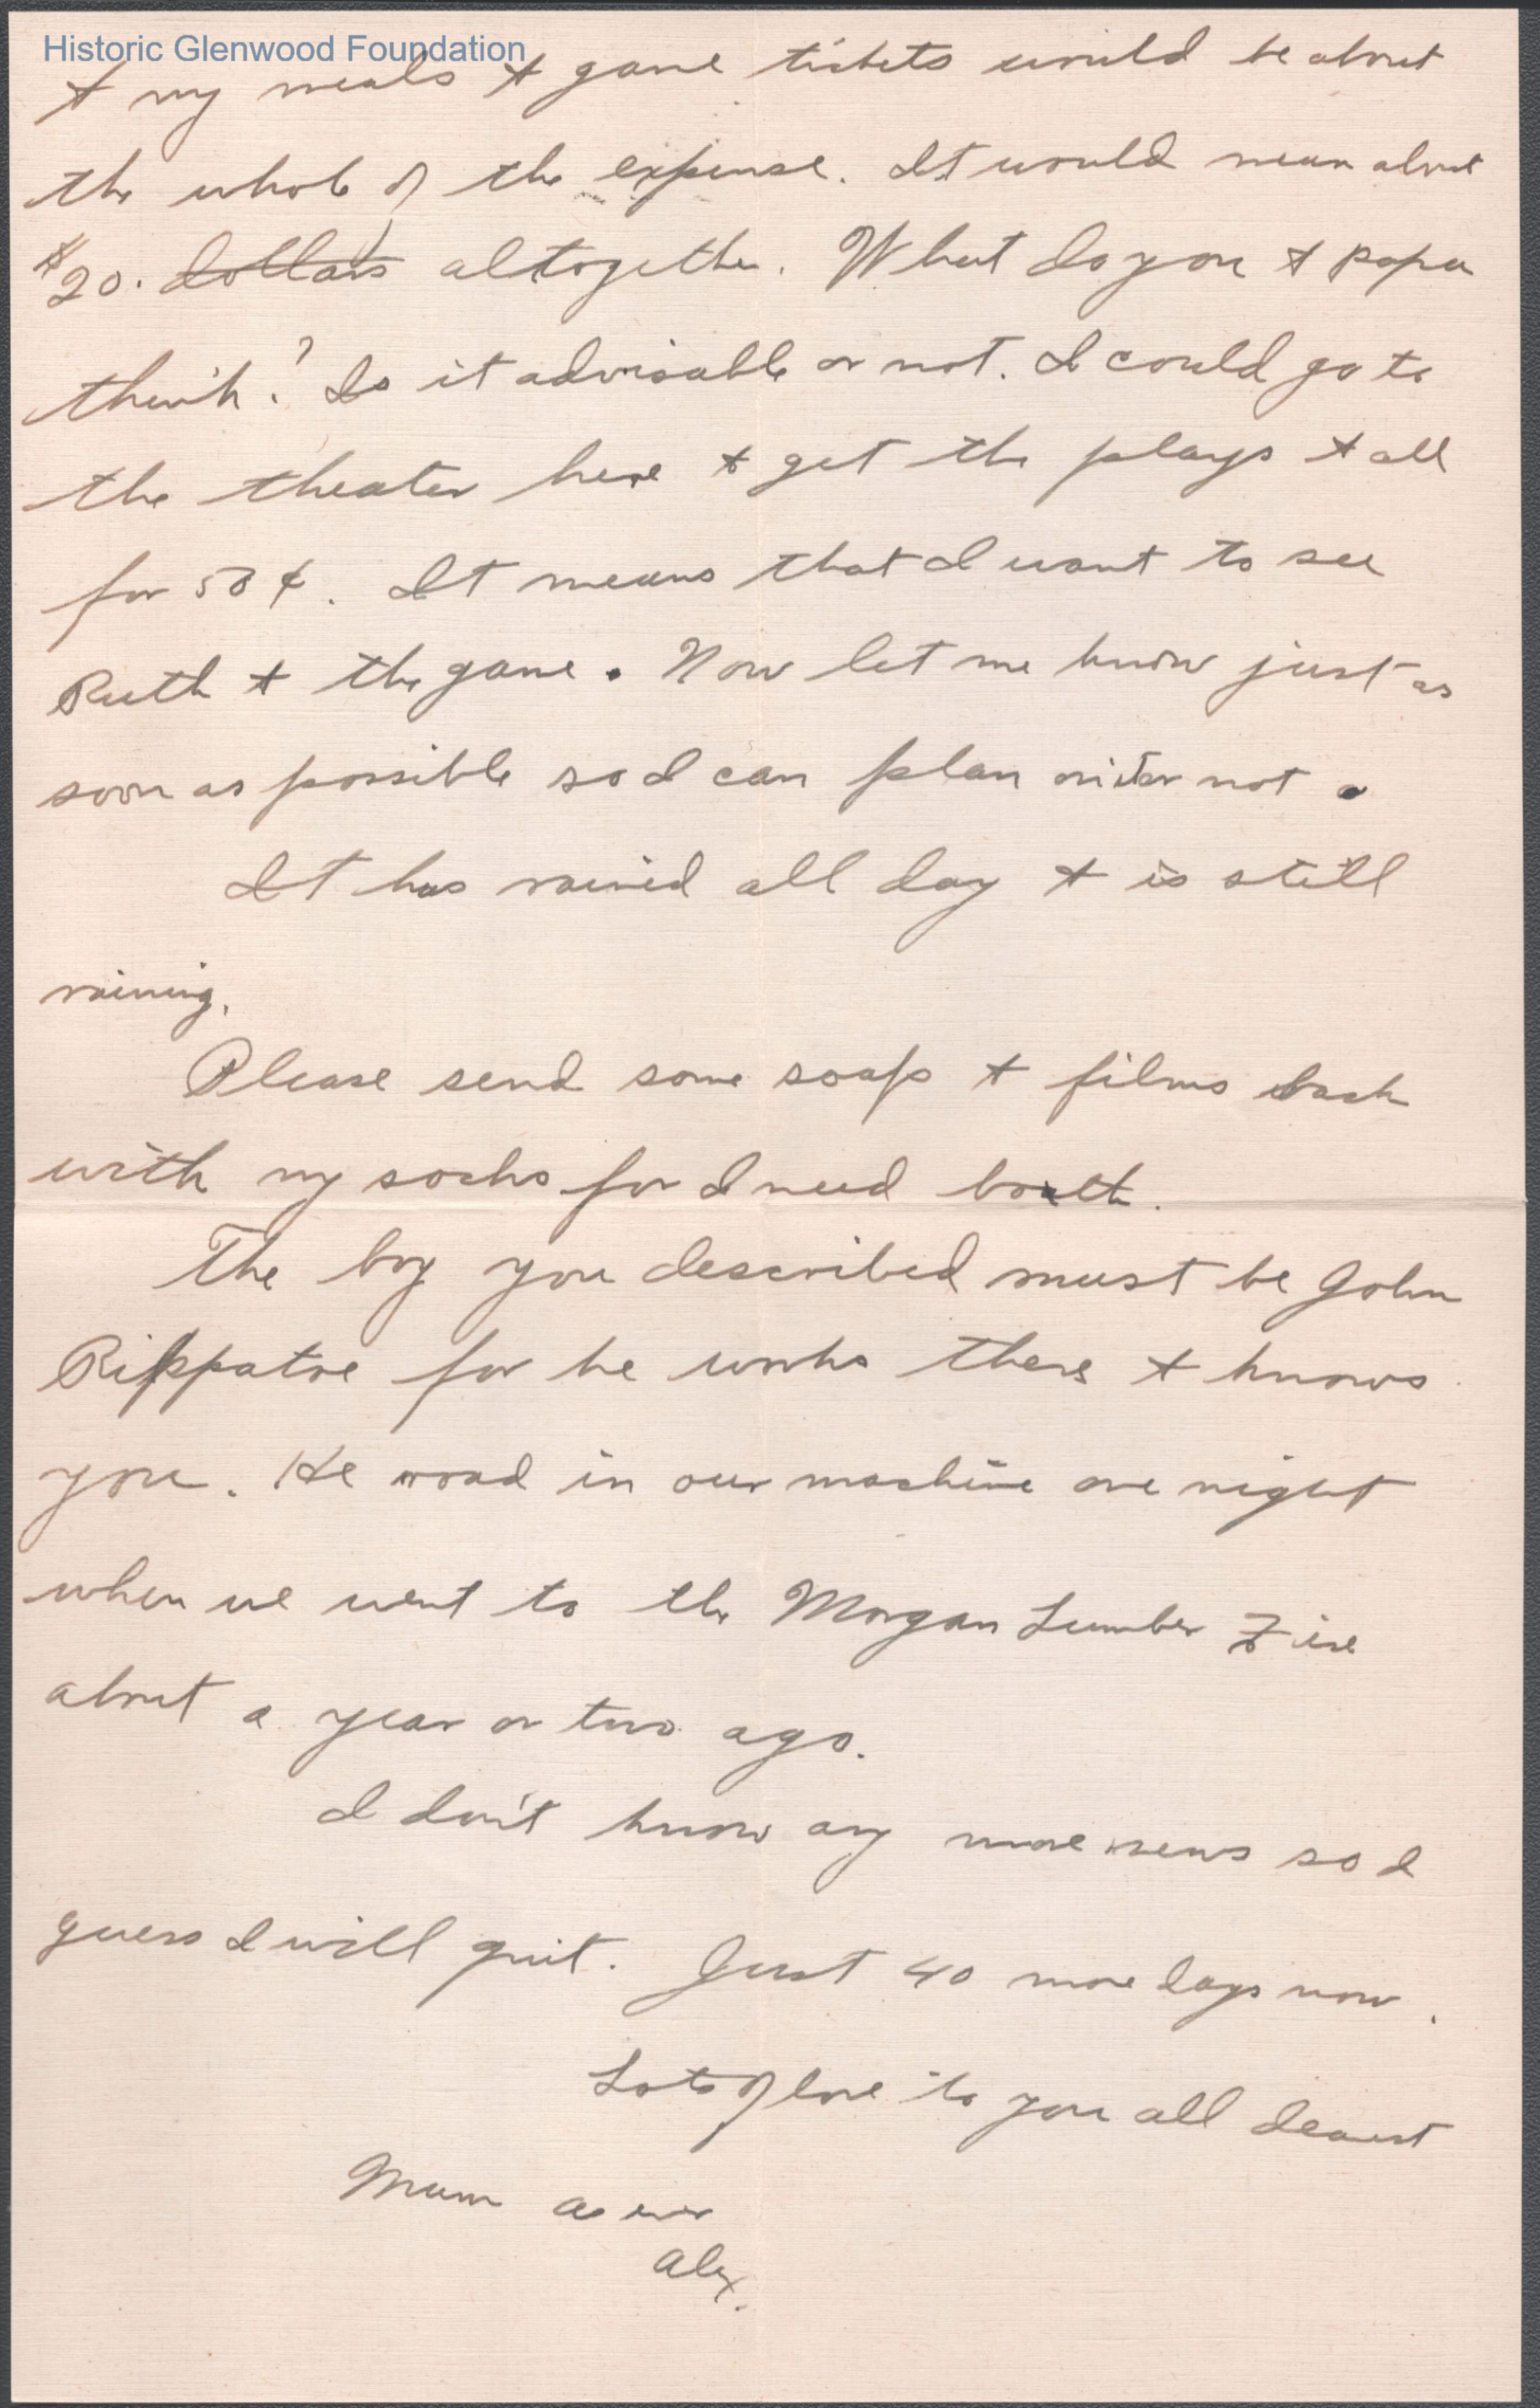 Historic Glenwood Foundation
+ my meals + game tickets would be about
the whole of the expense. It would mean about
$20. dollars altogether. What do you + papa
think? Is it advisable or not. I could go to
the theater here + get the plays + all
for 50¢. It means that I want to see
Ruth + the game. Now let me know just as
soon as possible so I can plan on it or not.
It has rained all day + is still
raining.
Please send some soap + films back
with my socks for I need both.
The boy you described must be John
Rippatoe for he works there + knows
you. He road in our machine one night
when we went to the Morgan Lumber Fire
about a year or two ago.
I don't know any more news so I
guess I will quit. Just 40 more days now.
Lots of love to you all dearest
Mum as ever
Alex.